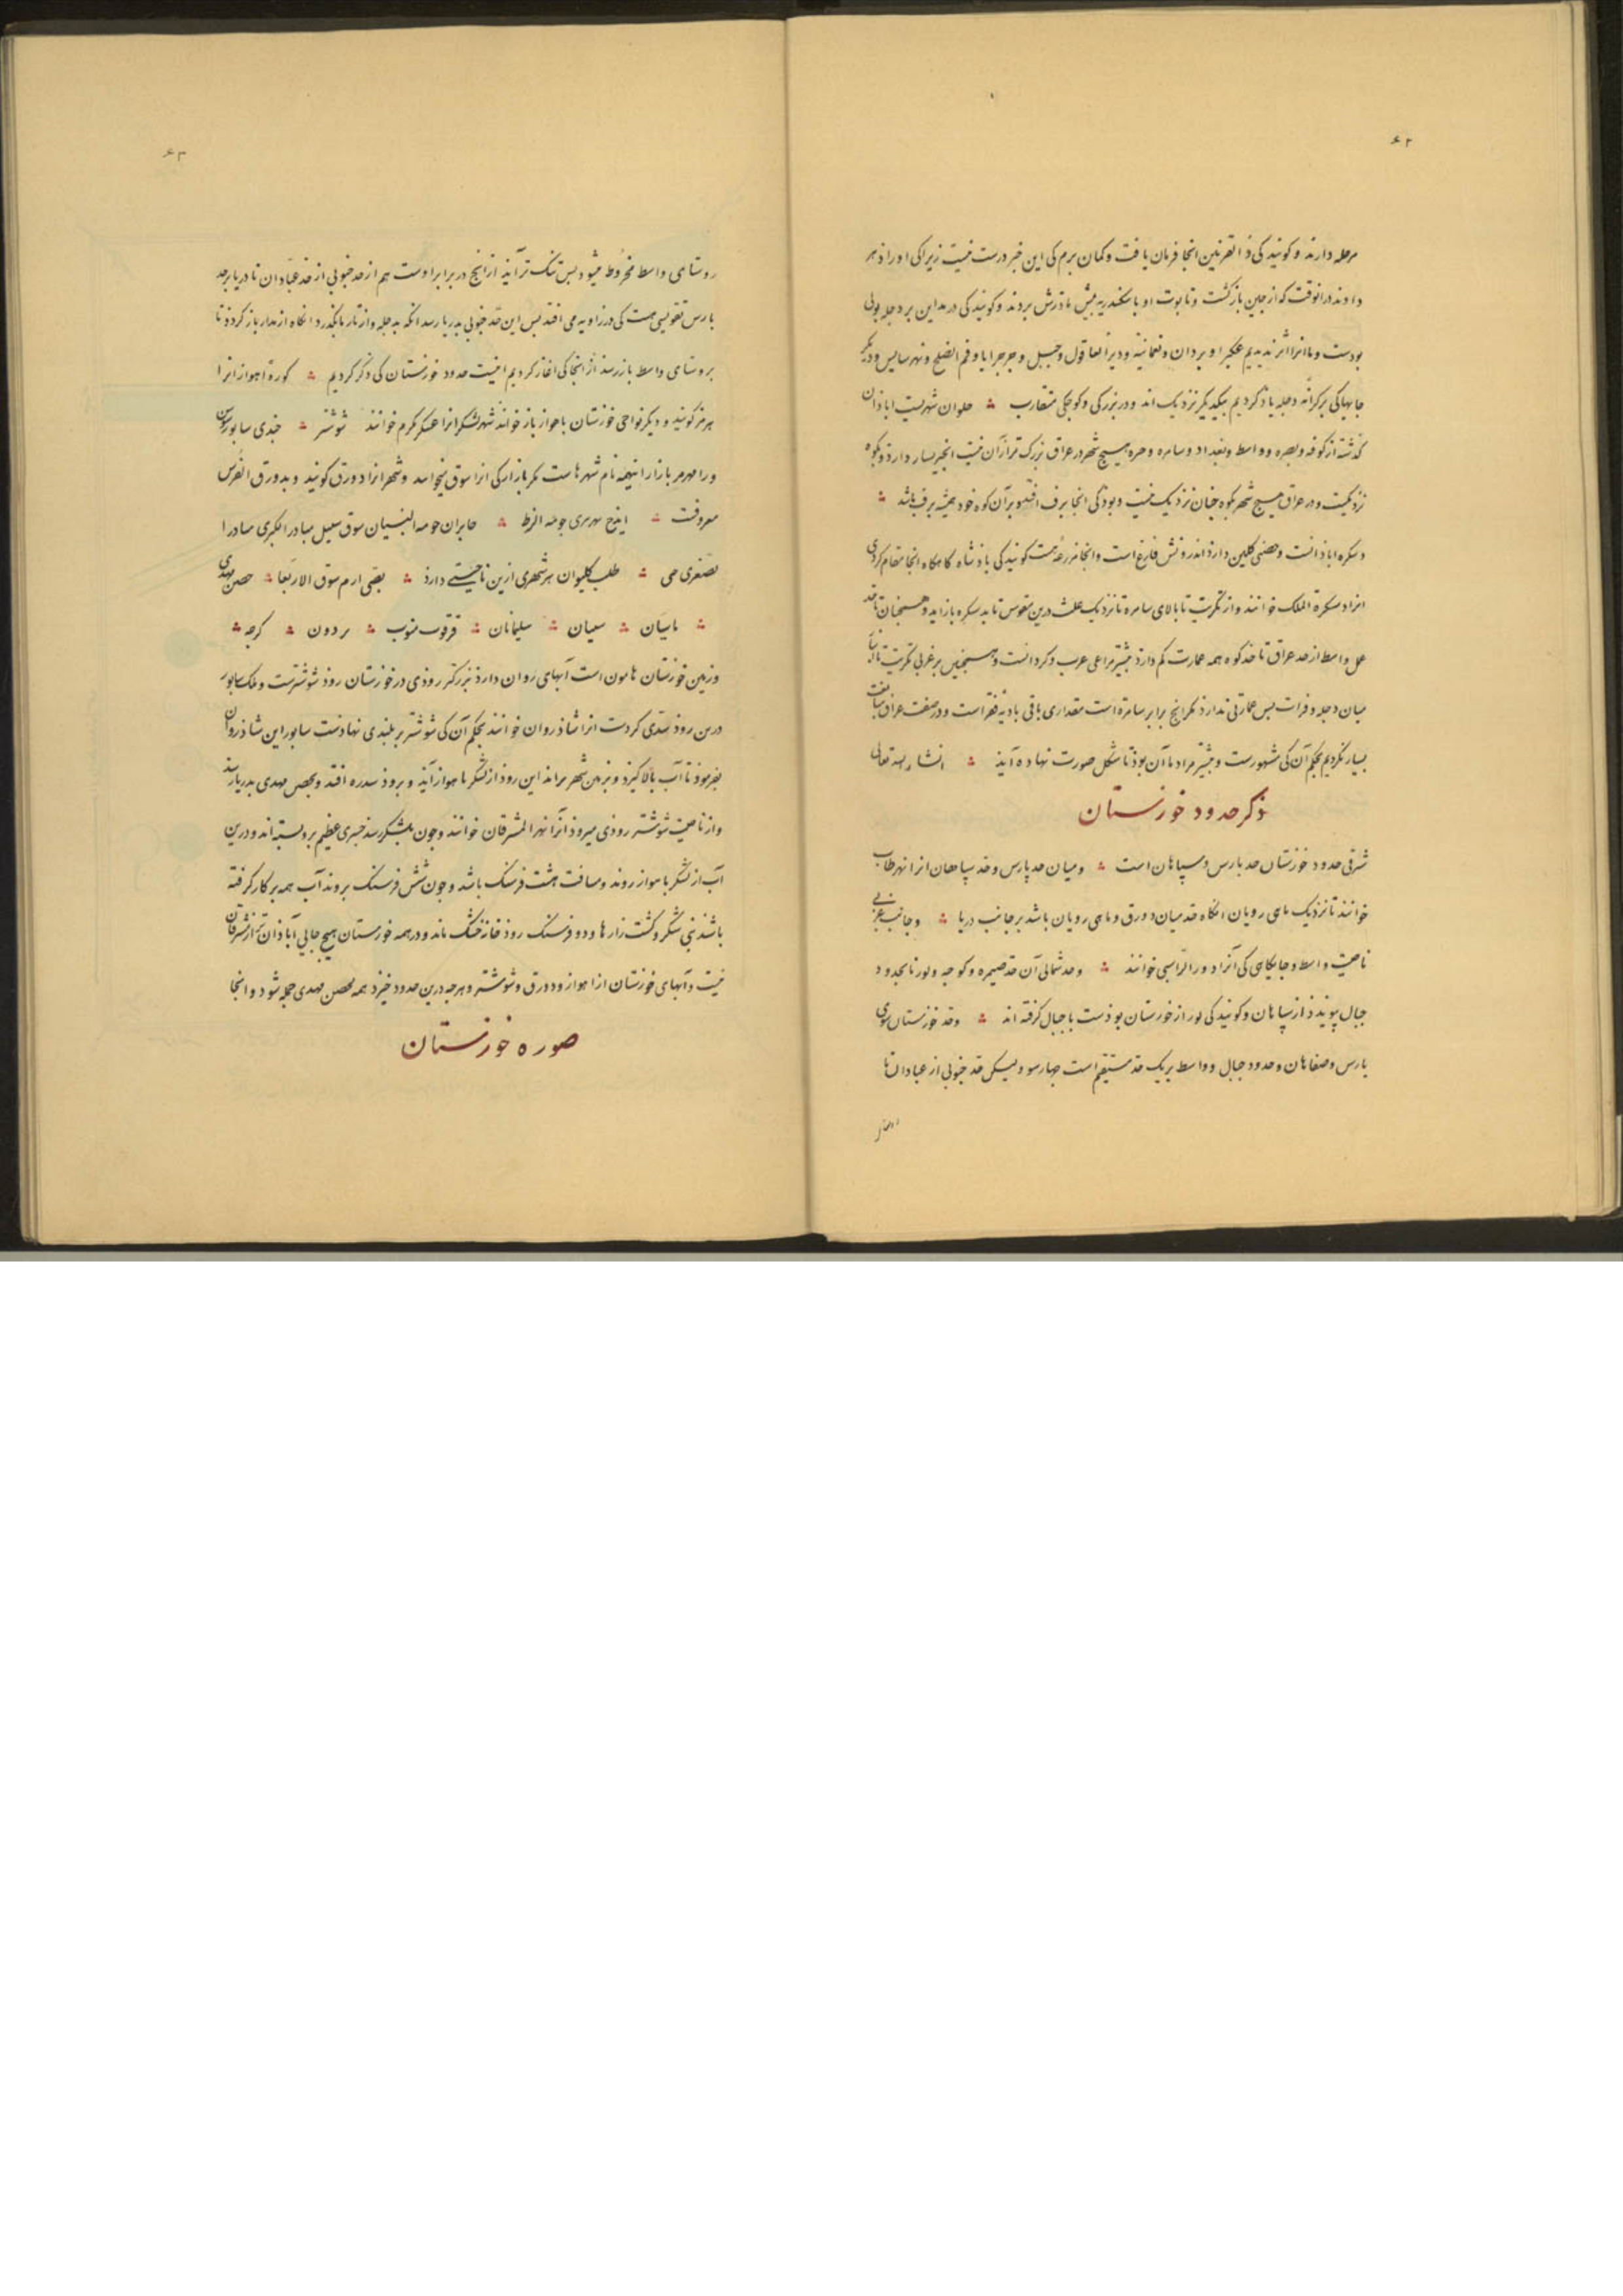 ۶۲
مرحله دارند و کویند کی ذا القرنین انجا فرمان یافت و کمان برم کی این خبر درست نیست زیرا کی او را زهر
دادند در انوقت که از جین بازکشت و تابوت او باسکندریه پیش مادرش بردند و کویند کی در مداین بر دجله پولی
بودست و ما انرا اثر ندیدیم عکبرا و بردان و نعمانیه و دیر العاقول و جبل و جرجرایا و فم الصلح و نهر سابس و دیکر
جایهاکی بر کرانه دجله یاد کردیم بیکدیکر نزدیک اند و در بزرکی و کوجکی متقارب ؞ حلوان شهریست ابادان
کذشته از کوفه و بصره و واسط و بغداد و سامره و حره هیچ شهر در عراق بزرک تر از آن نیست انجیر بسیار دارد و بکوه
نزدیکست و در عراق هیچ شهر بکوه جنان نزدیک نیست و بود کی انجا برف افتد و بر آن کوه خود همیشه برف باشد ؞
دسکره ابادانست و حصنی کلین دارد اندرونش فارغ است و انجا مزرعه هست کویند کی پادشاه کاه کاه انجا مقام کردی
انرا دسکرة الملک خوانند و از تکریت تا بالای سامره تا نزدیک علث درین مقوس تا بدسکره بازاید و همجنان تا حد
عمل واسط از حد عراق تا حد کوه همه عمارت کم دارد بیشتر مراعی عرب و کردانست و همجنین بر غربی تکریت تا انبار
میان دجله و فرات بس عمارتی ندارد مکر انج برابر سامره است مقداری باقی بادیه قفر است و در صفت عراق مبالغت
بسیار نکردیم بحکم آن کی مشهورست و بیشتر مراد ما آن بود تا شکل صورت نهاده آید ؞ انشاء الله تعالی
ذکر حدود خوزستان
شرقی حدود خوزستان حد پارس و سپاهان است ؞ و میان حد پارس و حد سپاهان انرا نهر طاب
خوانند تا نزدیک ماهی رویان انکاه حد میان دورق و ماهی رویان باشد بر جانب دریا ؞ و جانب غربی
ناحیت واسط و جایکاهی کی آنرا دور الراسبی خوانند ؞ و حد شمالی آن حد صیمره و کوجه و لور تا بحدود
جبال پیوندد از سپاهان و کویند کی لور از خوزستان بوذست با جبال کرفته اند ؞ و حد خوزستان سوی
پارس و صفاهان و حدود جبال و واسط بر یک حد مستقیم است جهارسو و لیکن حد جنوبی از عبادان تا
۶۳
روستای واسط مخروط میشود بس تنک تر آید از انج در برابر اوست هم از حد جنوبی از حد عبادان تا دریا بر حد
پارس تقویسی هست کی در زاویه می افتد بس این حد جنوبی بدریا رسد انکه بدجله و از تار ما بکذرد انکاه از مدار باز کردد تا
بروستای واسط باز رسد از انجا کی اغاز کردیم اینست حدود خوزستان کی ذکر کردیم ؞ کورة اهواز انرا
هرمز کویند و دیکر نواحی خوزستان باهواز باز خوانند شهر لشکر انرا عسکر مکرم خوانند شوشتر ؞ جندی سابور سوس
و رامهرمز بازار اینهمه نام شهرهاست مکر بازار کی انرا سوق میخوانند و شهر انرا دورق کویند و بدورق الفرس
معروفست ؞ ایذج نهر تیری حومه الزط ؞ جابران حومه البنیان سوق سنبیل مناذر الکبری مناذر ا
لصغری جبی ؞ طیب کلیوان هر شهری ازین ناحیتی دارد ؞ بصنی ازم سوق الاربعا ؞ حصن مهدی
؞ باسیان ؞ سیان ؞ سلیمانان ؞ قرقوب متوث ؞ بردون ؞ کرجه ؞
و زمین خوزستان هامون است آبهای روان دارد بزرکتر روذی در خوزستان روذ شوشترست و ملک سابور
درین روذ سدی کردست انرا شاذروان خوانند بحکم آن کی شوشتر بر بلندی نهادست سابور این شاذروان
بفرموذ تا آب بالا کیرد و بزمین شهر براند این روذ از لشکر باهواز آید و بروذ سدره افتد و بحصن مهدی بدریا رسد
و از ناحیت شوشتر روذی میروذ آنرا نهر المسرقان خوانند و جون بلشکر رسد جسری عظیم برو بسته اند و درین
آب از لشکر باهواز روند و مسافت هشت فرسنک باشد و جون شش فرسنک بروند آب همه بر کار کرفته
باشند بنی شکر و کشت زارها و دو فرسنک روذ خانه خشک ماند و در همه خوزستان هیچ جایی آباذان تر از مسرقان
نیست و آبهای خوزستان از اهواز و دورق و شوشتر و هرجه درین حدود خیزد همه بحصن مهدی جمله شود و انجا
صوره خوزستان